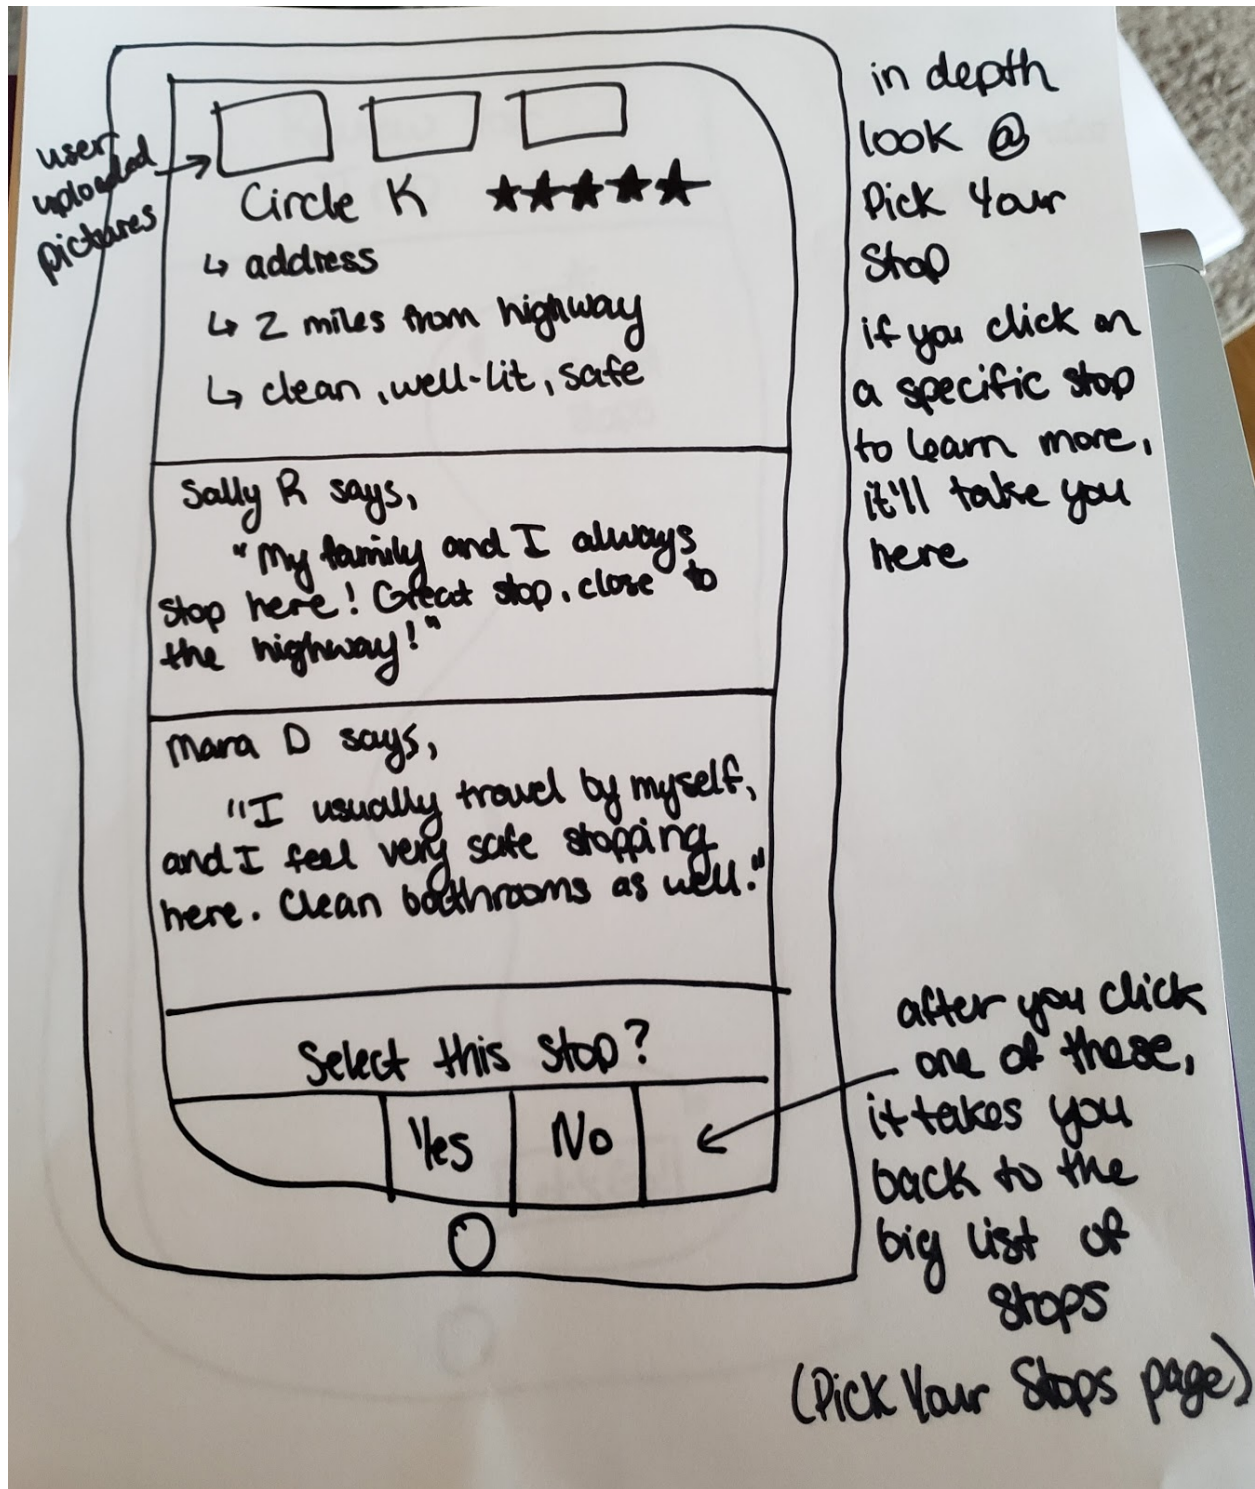 user
uploaded
pictures
Circle K ★★★★★
↳ address
↳ 2 miles from highway
↳ clean, well-lit, safe
Sally R says,
"My family and I always
stop here! Great stop, close to
the highway!"
Mara D says,
"I usually travel by myself,
and I feel very safe stopping
here. Clean bathrooms as well."
Select this stop?
Yes No
in depth
look @
Pick Your
Stop
if you click on
a specific stop
to learn more,
it'll take you
here
after you click
one of these,
it takes you
back to the
big list of
stops
(Pick Your Stops page)